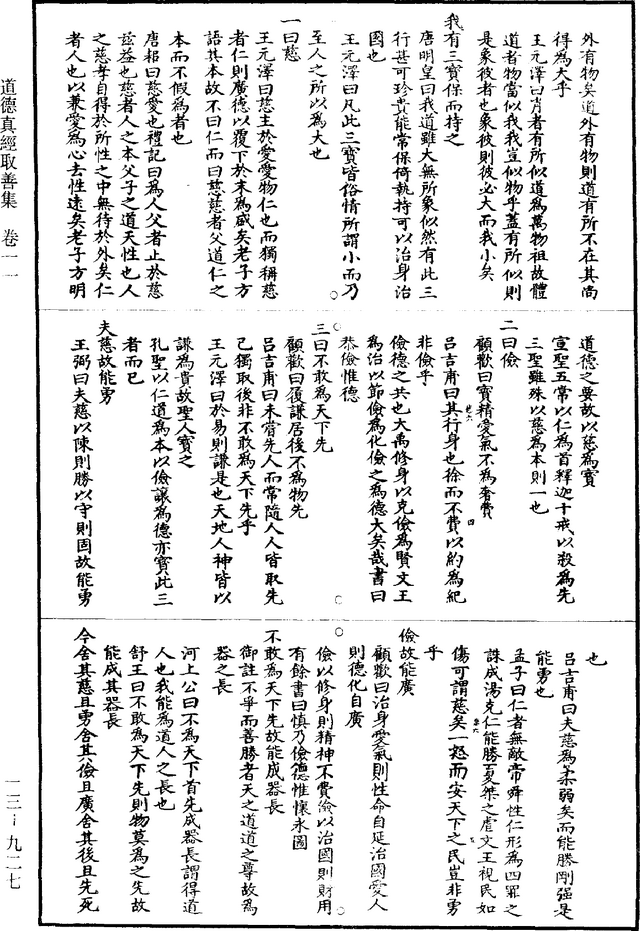 外有物矣道外有物則道有所不在其尚
得為大乎
王元澤曰肖者有所似道為萬物祖故體
道者物當似我我豈似物乎蓋有所似則
是象彼者也象彼則彼必大而我小矣
我有三寶保而持之
唐明皇曰我道雖大無所象似然有此三
行甚可珍貴能常保倚執持可以治身治
國也
王元澤曰凡此三寶皆俗情所謂小而乃
至人之所以為大也
一曰慈
王元澤曰慈主於愛愛物仁也而獨稱慈
者仁則廣德以覆下於末為咸矣老子方
語其本故不曰仁而曰慈慈者父道仁之
本而不假為者也
唐耜曰慈愛也禮記曰為人父者止於慈
茲益也慈者人之本父子之道天性也人
之慈孝自得於所性之中無待於外矣仁
者人也以兼愛為心去性遠矣老子方明
道德之要故以慈為寶
宣聖五常以仁為首釋迦十戒以殺為先
三聖雖殊以慈為本則一也
二曰儉
顧歡曰寶精愛氣不為奢費
呂吉甫曰其行身也徐而不費以約為紀
非儉乎
儉德之共也大禹修身以克儉為賢文王
為治以節儉為化儉之為德大矣哉書曰
恭儉惟德
三曰不敢為天下先
顧歡曰履謙居後不為物先
呂吉甫曰未嘗先人而常隨人人皆取先
己獨取後非不敢為天下先乎
王元澤曰於易則謙是也天地人神皆以
謙為貴故聖人寶之
孔聖以仁道為本以儉讓為德亦寶此三
者而已
夫慈故能勇
王弼曰夫慈以陳則勝以守則固故能勇
也
呂吉甫曰夫慈為柔弱矣而能勝剛強是
能勇也
孟子曰仁者無敵帝舜性仁形為四罪之
誅成湯克仁能勝夏桀之虐文王視民如
傷可謂慈矣一怒而安天下之民豈非勇
乎
儉故能廣
顧歡曰治身愛氣則性命自延治國愛人
則德化自廣
儉以修身則精神不費儉以治國則財用
有餘書曰慎乃儉德惟懷永圖
不敢為天下先故能成器長
御註不爭而善勝者天之道道之尊故為
器之長
河上公曰不為天下首先成器長謂得道
人也我能為道人之長也
舒王曰不敢為天下先則物莫為之先故
能成其器長
今舍其慈且勇舍其儉且廣舍其後且先死
道德真經取善集　卷一一
一三—九二七